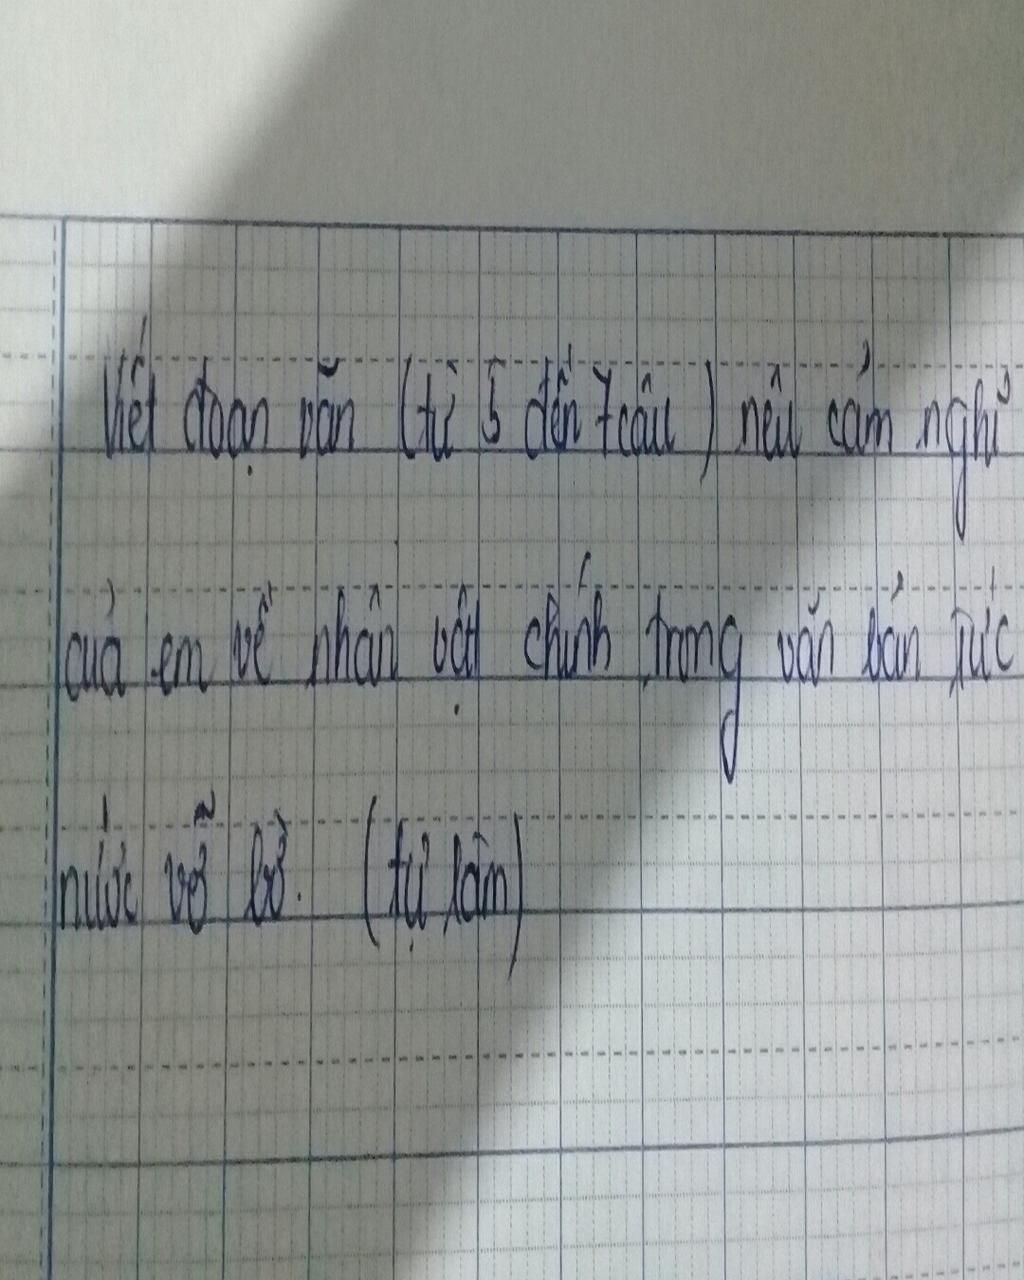 Viết đoạn văn (từ 5 đến 7 câu) nêu cảm nghĩ
của em về nhân vật chính trong văn bản Tức
nước vỡ bờ. (tự làm)